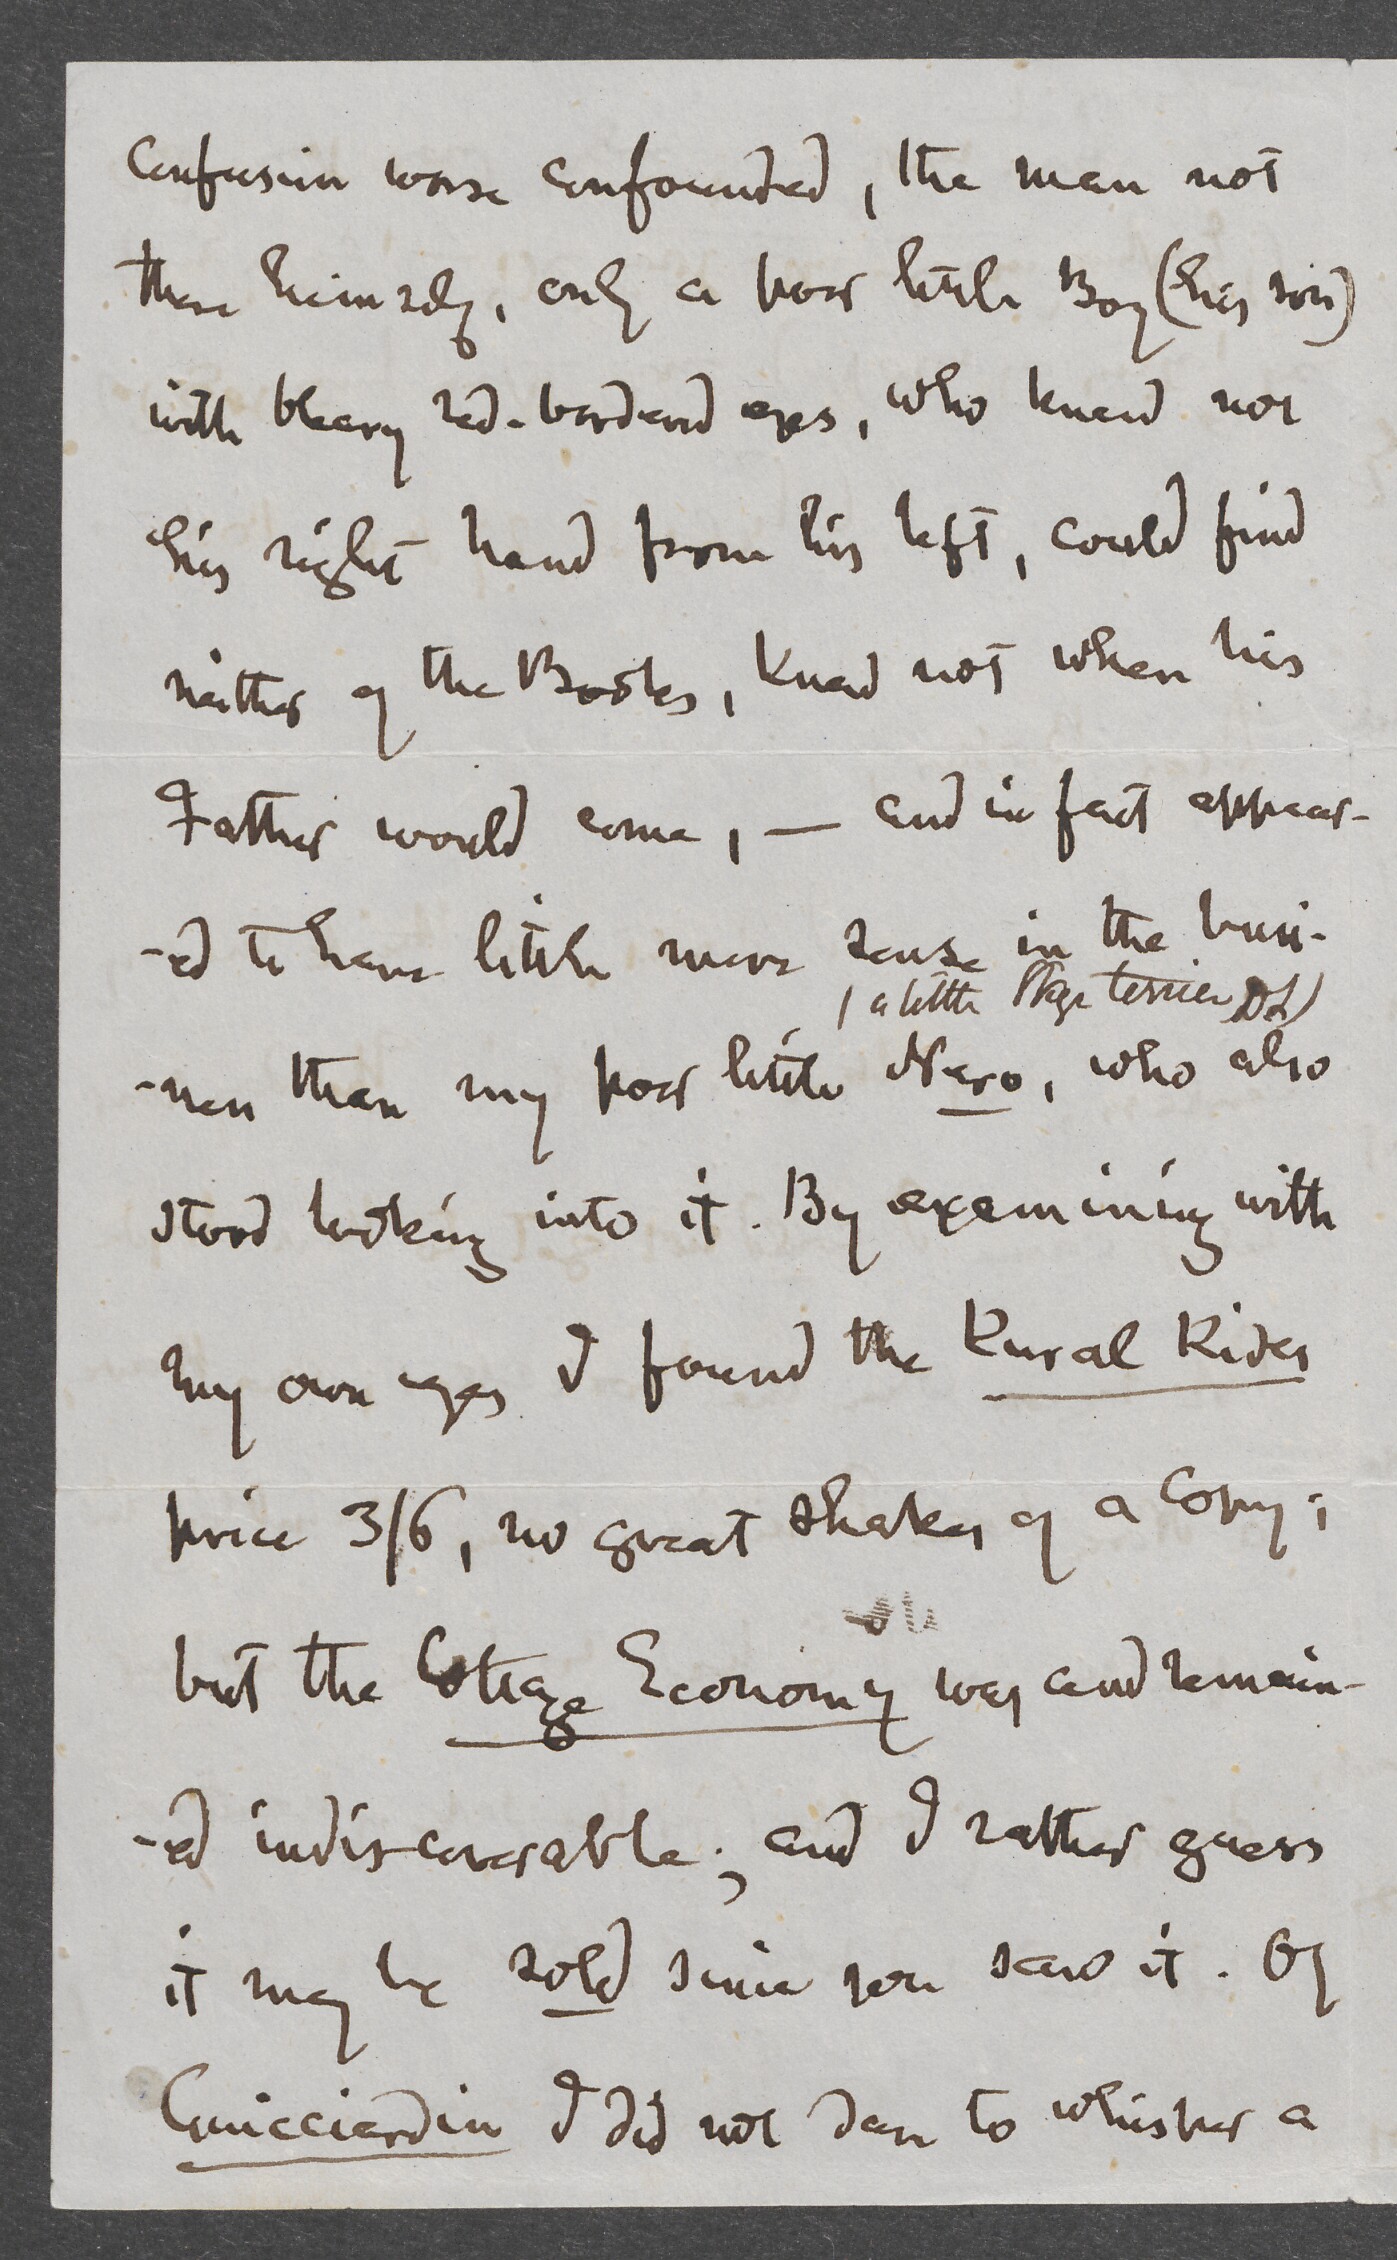 Confusion worse confounded, the man not
there himself, only a poor little Boy (his son)
with bleary red-bordered eyes, who knew not
his right hand from his left, could find
neither of the Books, knew not when his
Father would come, — and in fact appear-
-ed to have little more sense in the busi-
(a little Skye terrier DL)
-ness than my poor little Nero, who also
stood looking into it. By examining with
my own eyes I found the Rural Rides
price 3/6, no great shakes of a Copy;
but the Cottage Economy was and remain-
-ed indiscoverable; and I rather guess
it may be sold since you saw it. Of
Guicciardin I did not dare to whisper a